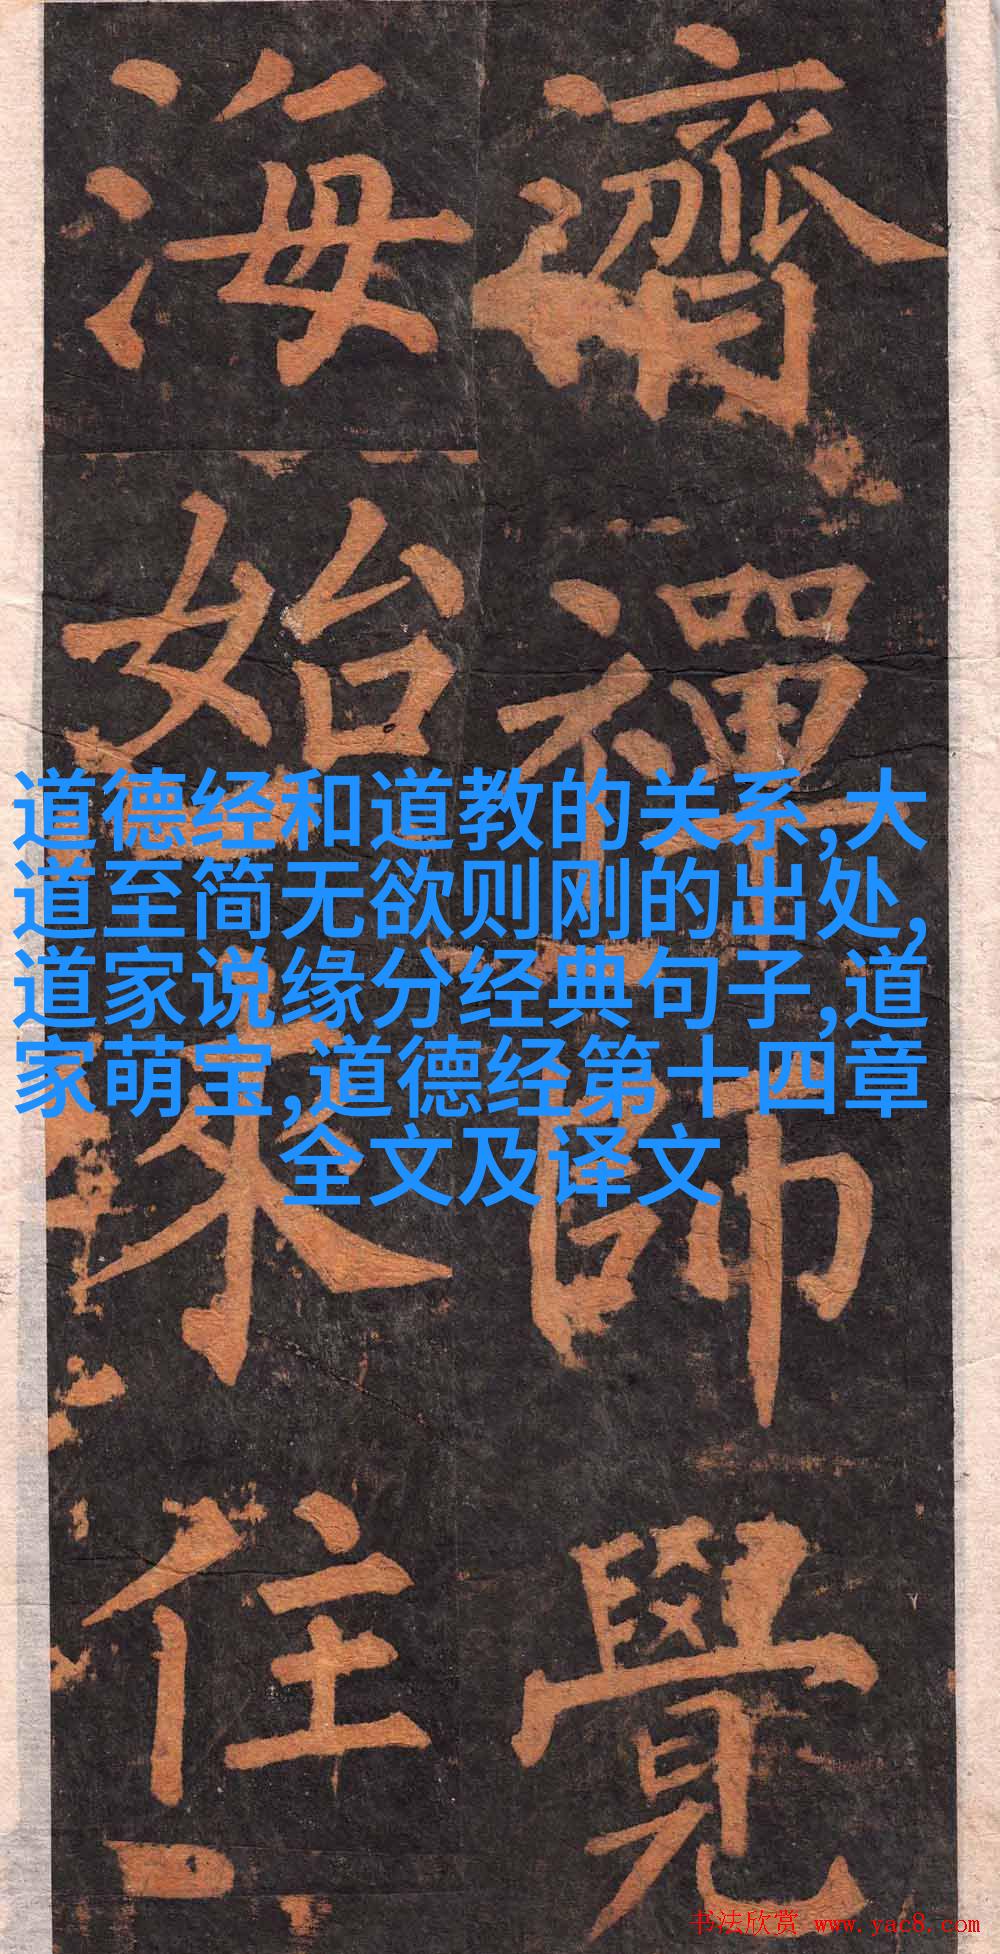 濟禪師覺
海始來住
道德经和道教的关系,大
道至简无欲则刚的出处,
道家说缘分经典句子,道
家萌宝,道德经第十四章
全文及译文
书法欣赏 www.yac8.com